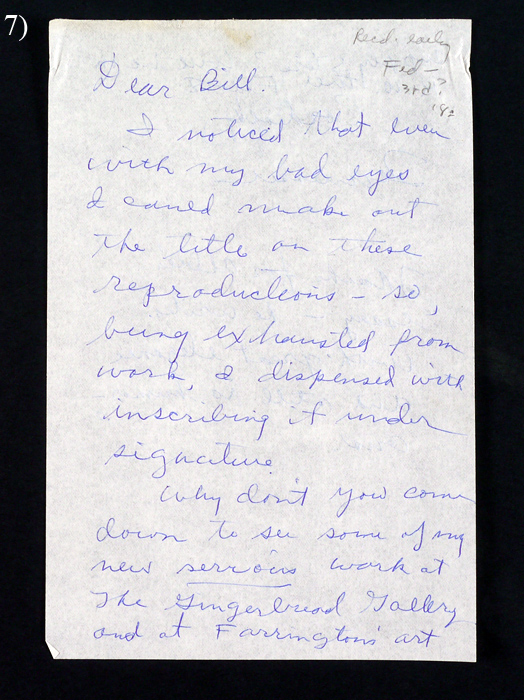 7)
Recd. early
Feb -
3rd?
'82
Dear Bill.
I noticed that even
with my bad eyes
I could make out
the title on these
reproductions - so,
being exhausted from
work, I dispensed with
inscribing it under
signature.
Why don't you come
down to see some of my
new serious work at
The Gingerbread Gallery
and at Farrington's art